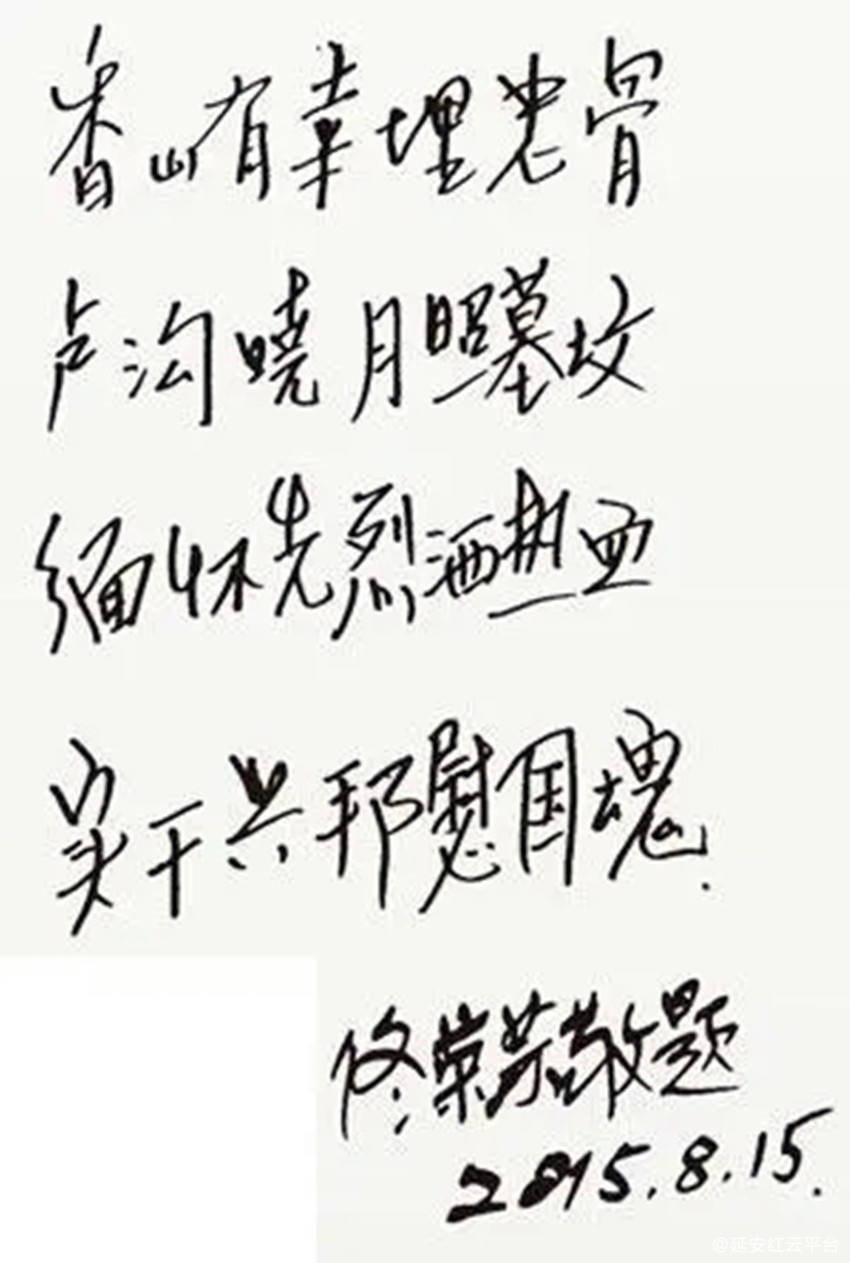 香山有幸埋忠骨
卢沟晓月照墓坟
缅怀先烈洒热血
实干兴邦慰国魂.
佟荣芳敬题
2015.8.15.
@延安红云平台